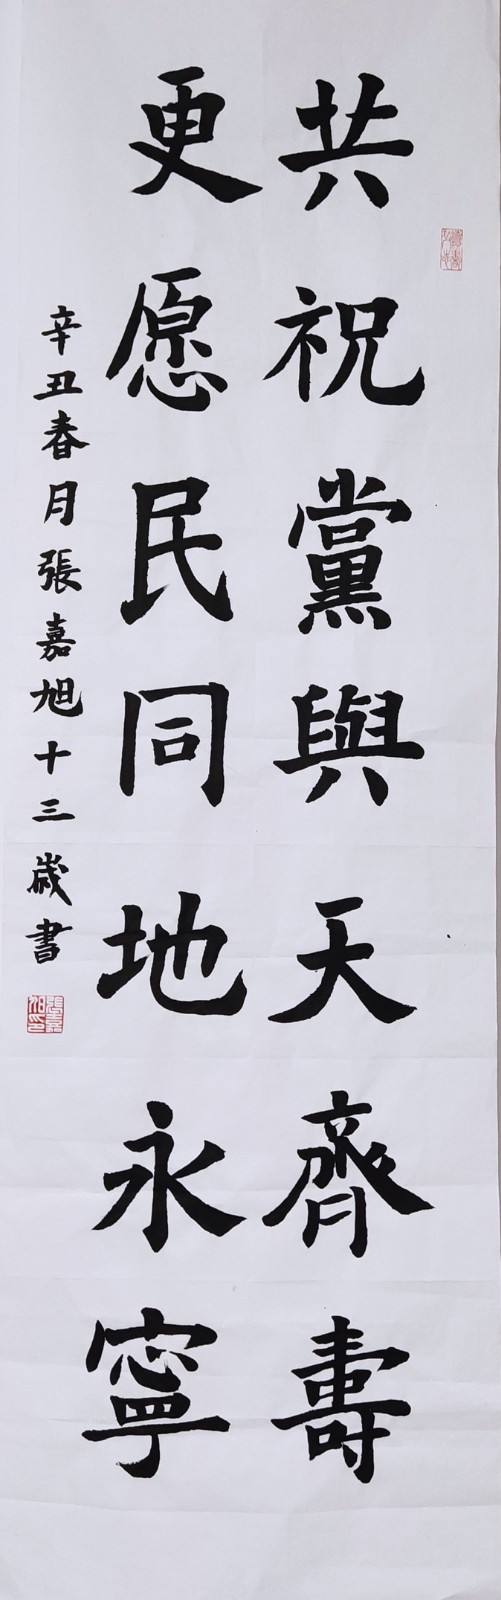 共祝黨與天齊壽
更愿民同地永寧
辛丑春月張嘉旭十三歲書
張嘉旭印